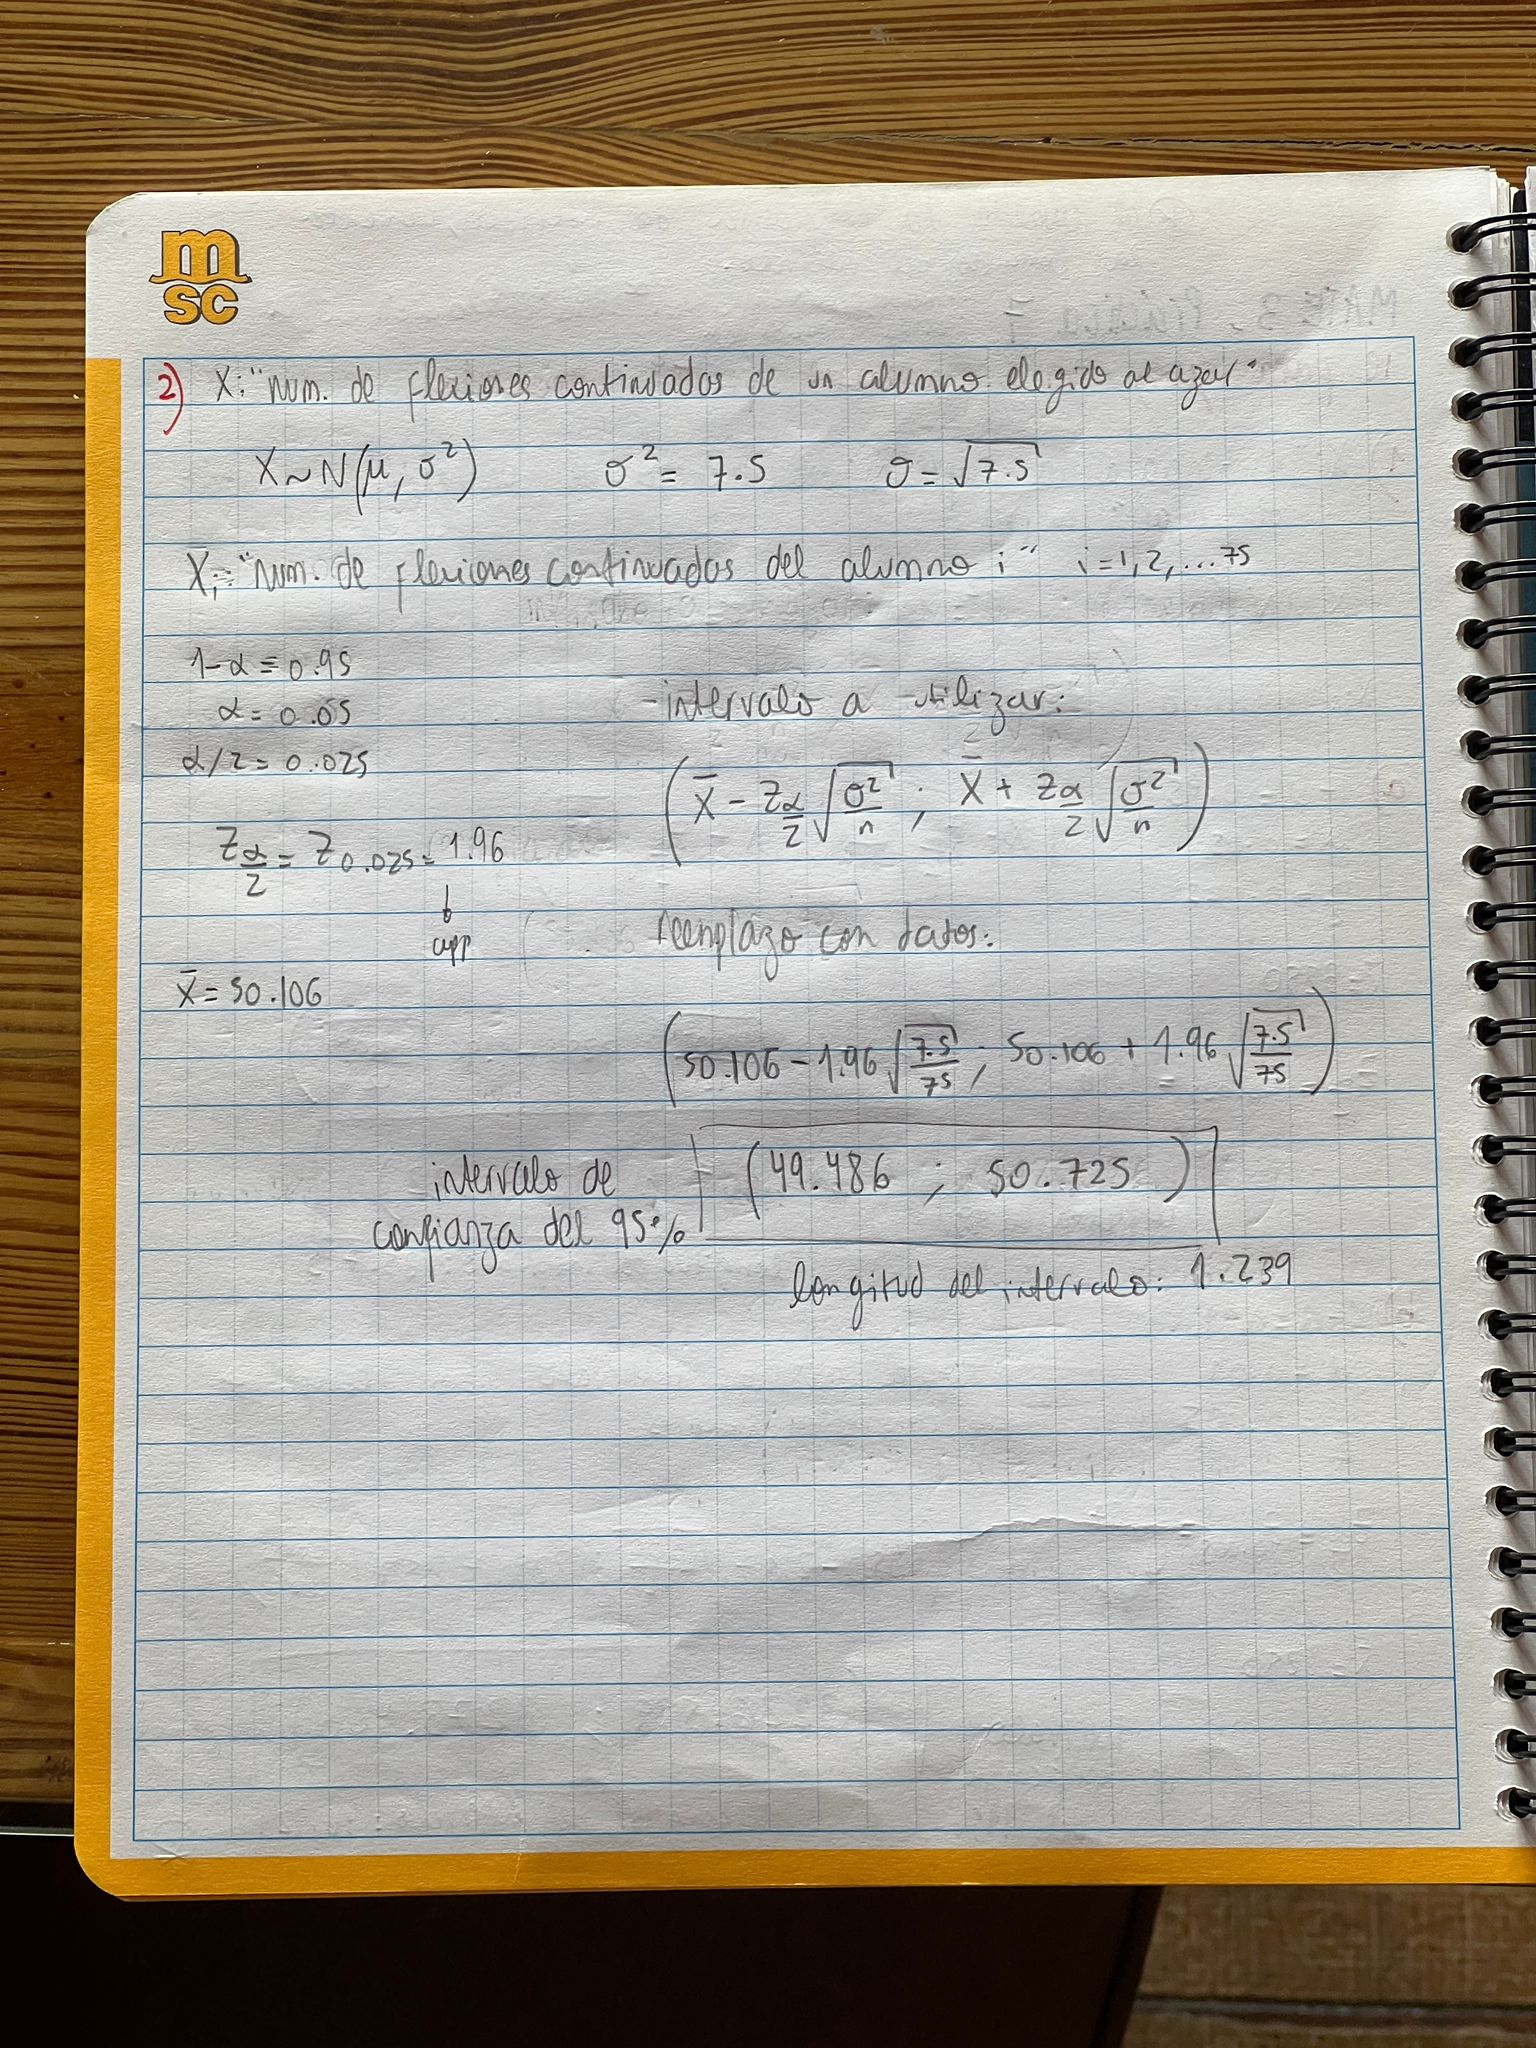 msc
2) X: "num. de flexiones continuados de un alumno elegido al azar"
X ~ N(μ, σ²) σ² = 7.5 σ = √7.5
Xᵢ = "num. de flexiones continuados del alumno i" i = 1, 2, ... 75
1-α = 0.95
α = 0.05
α/2 = 0.025
Z α/2 = Z 0.025 = 1.96
↓
app
X̄ = 50.106
- intervalo a utilizar:
(X̄ - Z α/2 √(σ²/n) ; X̄ + Z α/2 √(σ²/n))
reemplazo con datos:
(50.106 - 1.96 √(7.5/75) ; 50.106 + 1.96 √(7.5/75))
intervalo de
confianza del 95% (49.486 ; 50.725)
longitud del intervalo: 1.239